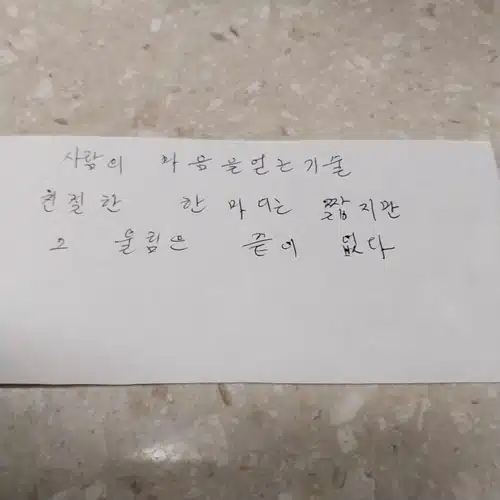 사람의 마음을얻는기술
친절한 한마디는 짧지만
그 울림은 끝이 없다